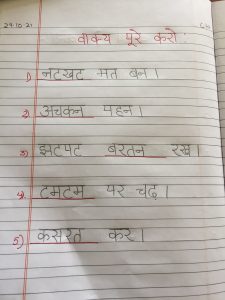 29.10.21
वाक्य पूरे करो :
1) नटखट मत बन।
2) अचकन पहन।
3) झटपट बरतन रख।
4) टमटम पर चढ़।
5) कसरत कर।